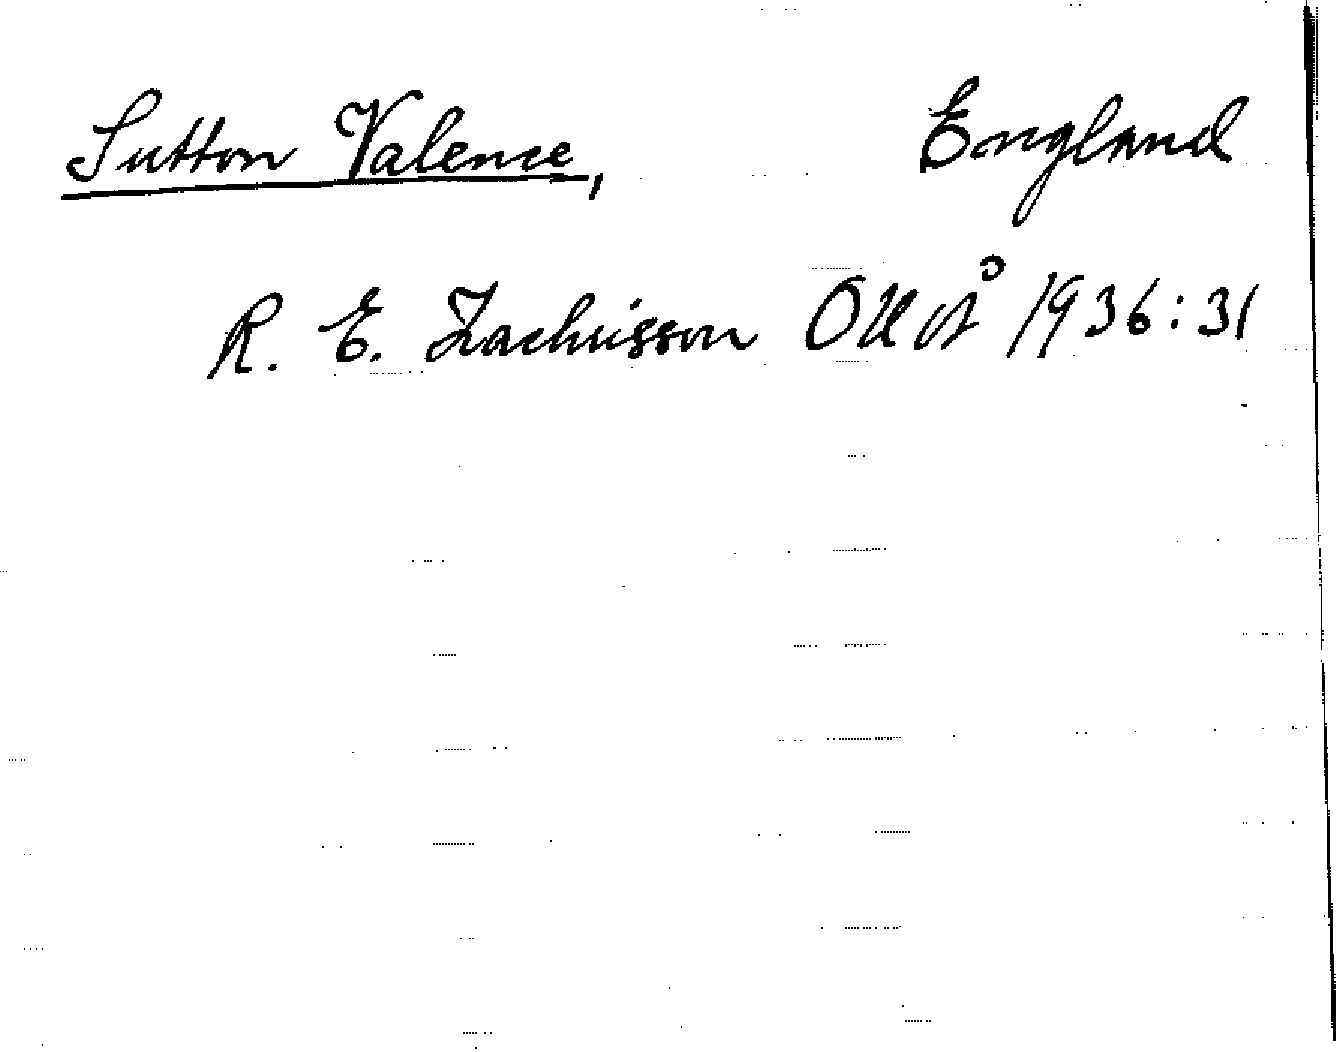 Sutton Valence, England
R. E. Zachrisson OUÅ 1936:31